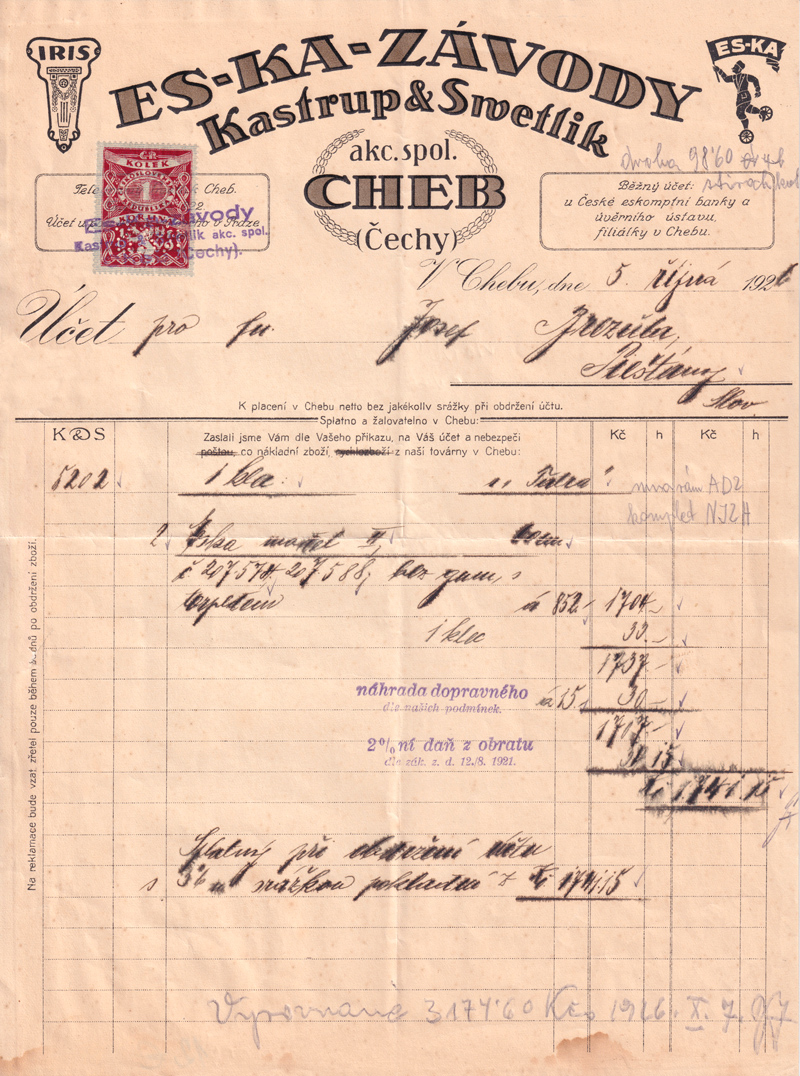 IRIS
ES-KA-ZÁVODY
ES-KA
Kastrup & Swetlik
akc. spol.
CHEB
(Čechy)
KOLEK
1
Tele Cheb.
Účet u v Praze
Závody
Kast lik akc. spol.
(Čechy).
98·60
Běžný účet:
u České eskomptní banky a
úvěrního ústavu,
filiálky v Chebu.
V Chebu, dne 5. října 1926
Účet pro fu. Josef
Piešťany
Slov
K placení v Chebu netto bez jakékoliv srážky při obdržení účtu.
Splatno a žalovatelno v Chebu:
K & S
Zaslali jsme Vám dle Vašeho příkazu, na Váš účet a nebezpečí
poštou, co nákladní zboží, rychlozboží z naší továrny v Chebu:
Kč h Kč h
5202 1 kla.
AD2
komplet
2 Eska model II,
č 207574, 207588, bez gum, s
á 852.- 1704.-
1 klec 33.-
1737.-
náhrada dopravného
dle našich podmínek.
á 15. 30.-
1707.-
2%ní daň z obratu
dle zák. z. d. 12./8. 1921.
34 15
Kč 1741 15
Splatný při obdržení účtu
s srážkou pokladní Kč 1741.15
Na reklamace bude vzat zřetel pouze během dnů po obdržení zboží.
Vyrovnané 3174·60 Kčs 1926. X. 7.